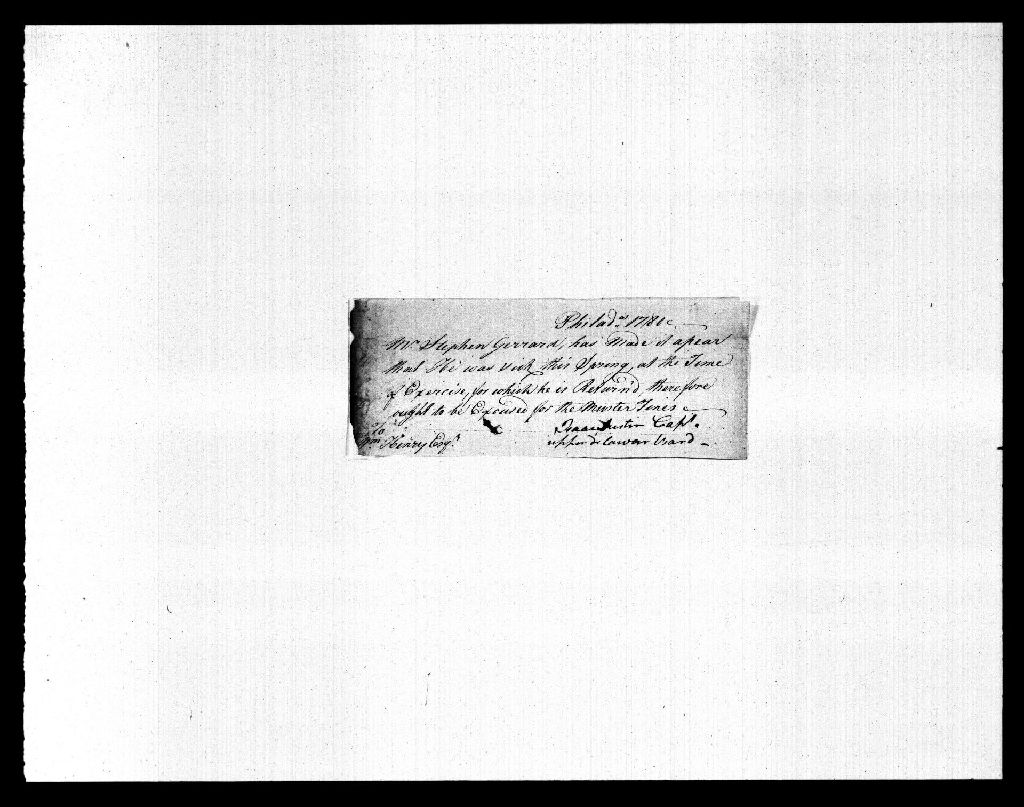 Philad.ª 1781
Mr. Stephen Gerrard, has Made it apear
that He was sick this Spring, at the Time
of Exercise, for which he is Return'd, therefore
ought to be Excused for the Muster Fines
Isaac Austin Capt.
To
Wm Henry Esqr.
upper d. Ward